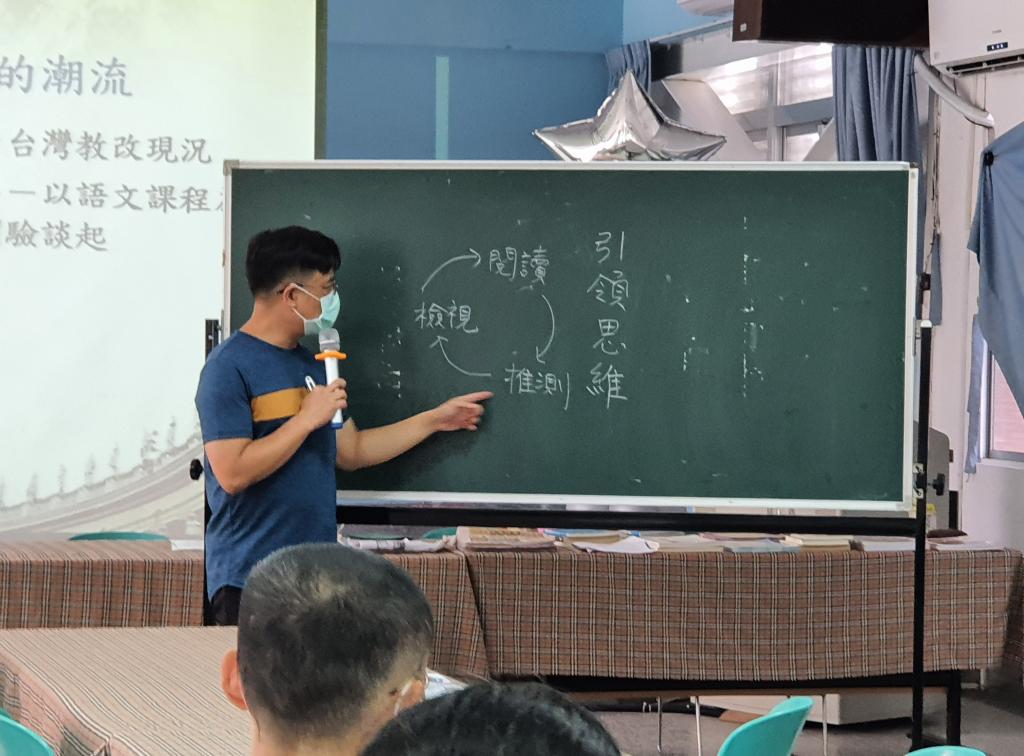 的潮流
台灣教改現況
－以語文課程
驗談起
引領思維
閱讀
推測
檢視